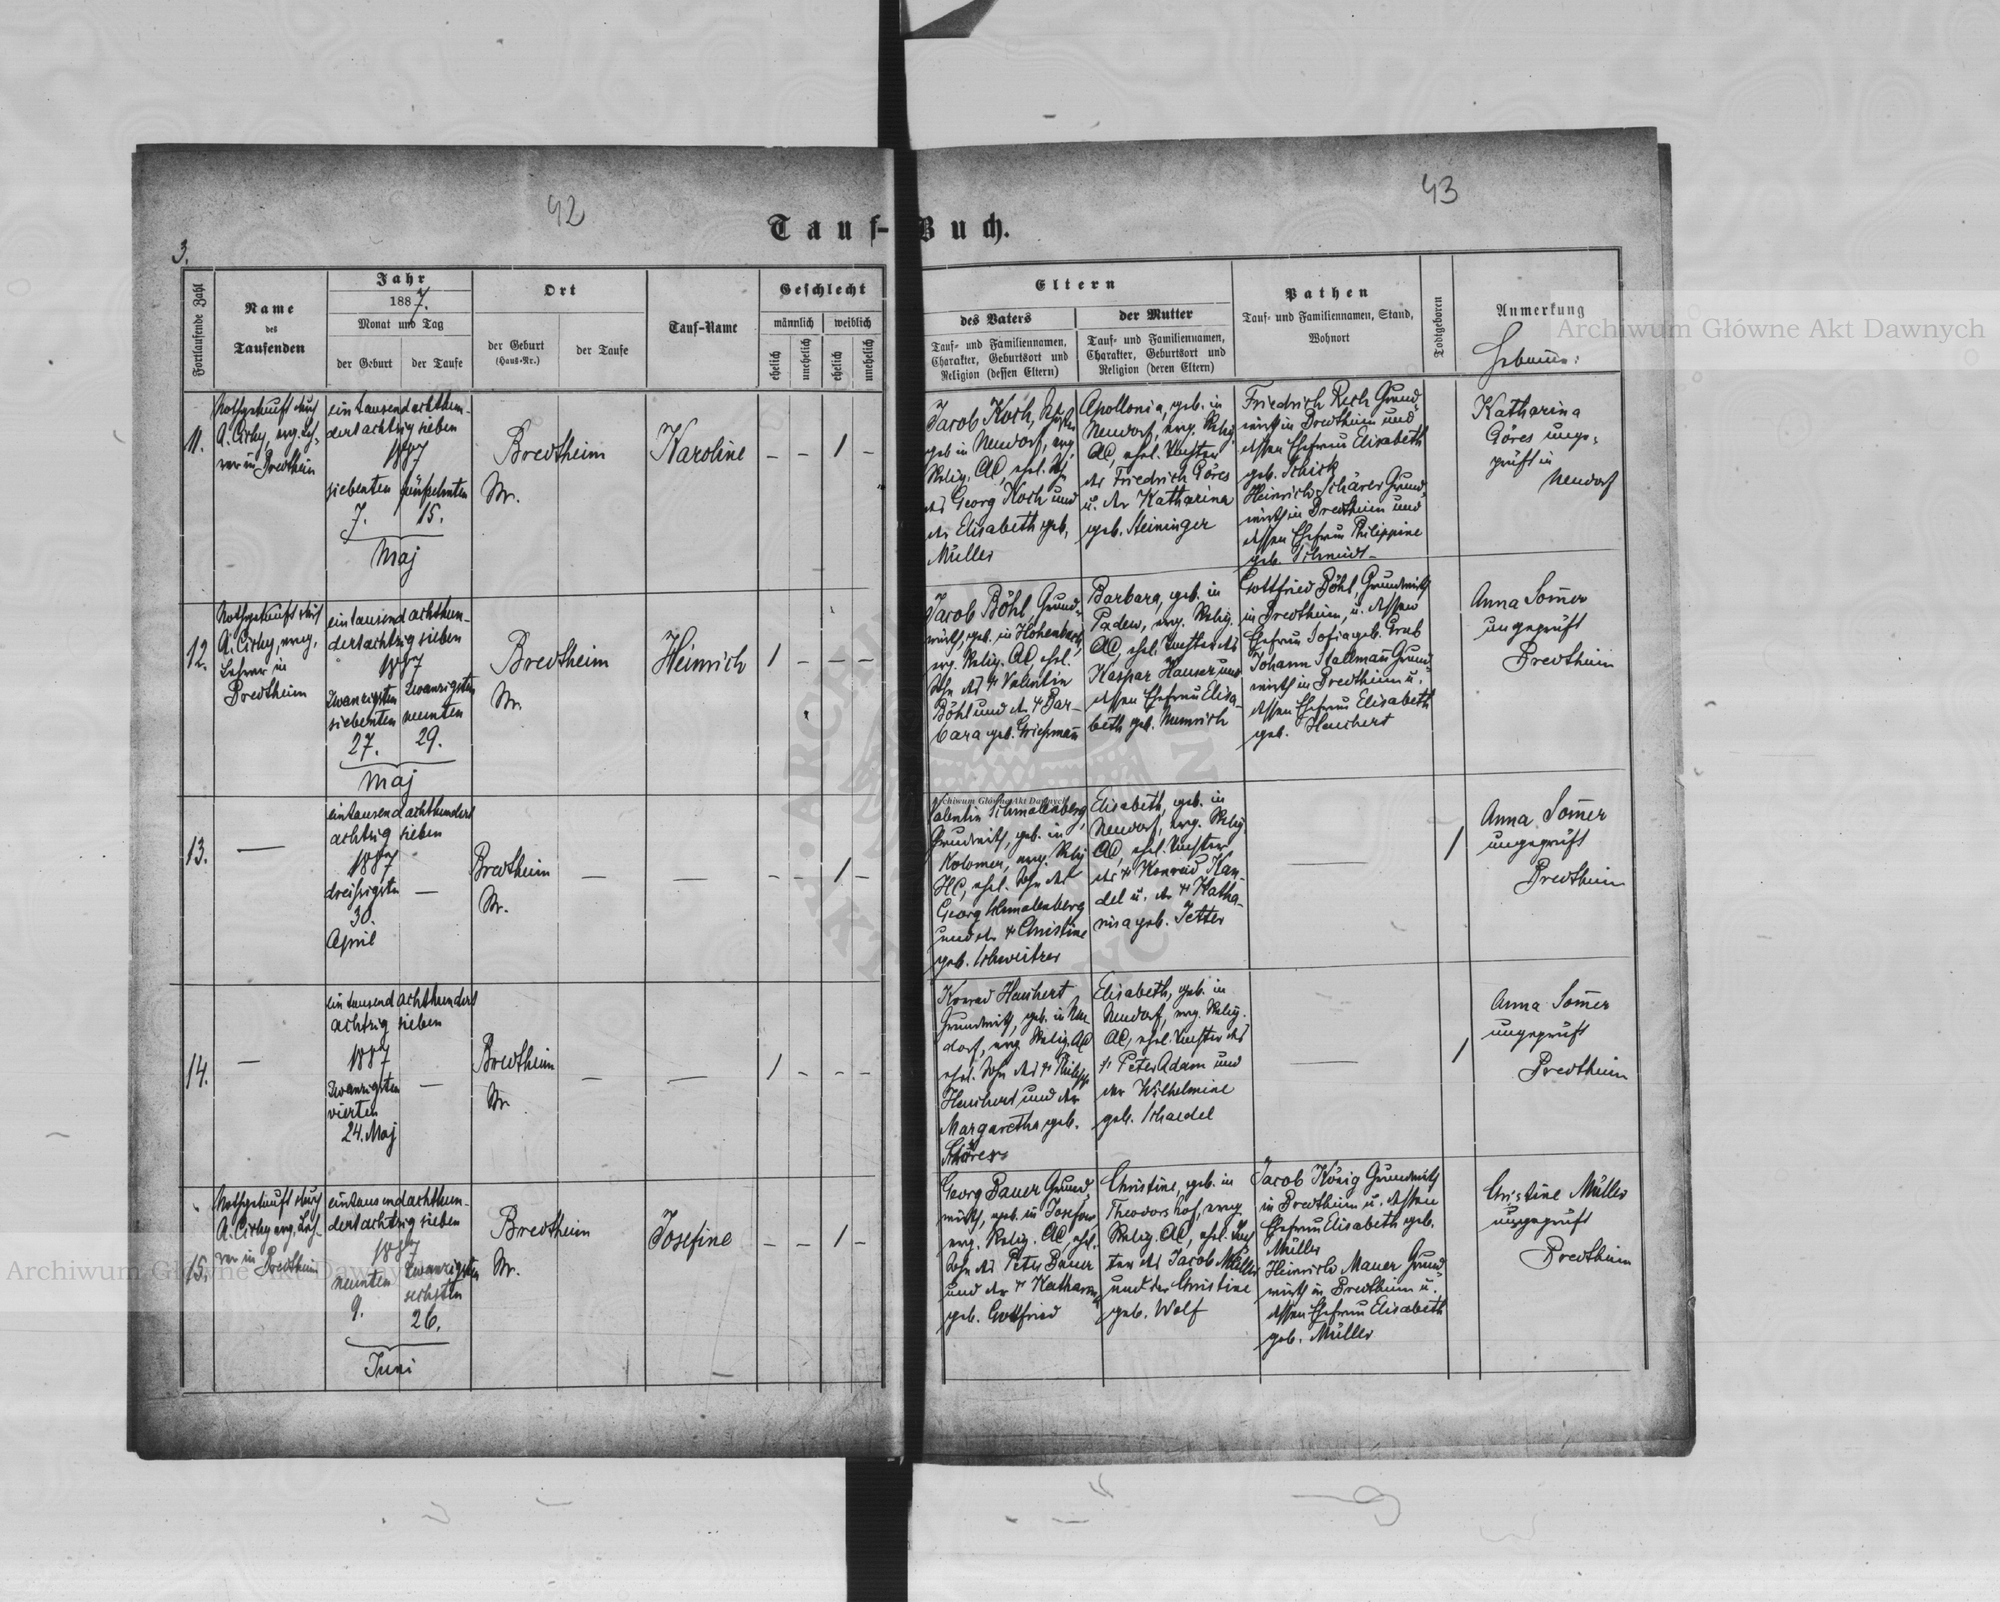 42
43
Tauf-Buch.
3.
Fortlaufende Zahl
Name
des
Taufenden
Jahr
1887.
Monat und Tag
der Geburt
der Taufe
Ort
der Geburt
(Haus-Nr.)
der Taufe
Tauf-Name
Geschlecht
männlich
weiblich
ehelich
unehelich
ehelich
unehelich
Eltern
des Vaters
Tauf- und Familiennamen,
Charakter, Geburtsort und
Religion (dessen Eltern)
der Mutter
Tauf- und Familiennamen,
Charakter, Geburtsort und
Religion (deren Eltern)
Pathen
Tauf- und Familiennamen, Stand,
Wohnort
Todtgeboren
Anmerkung
11.
Nothgetauft durch
A. evg. Leh-
rer in Bredtheim
ein tausend achthun-
dert achtzig sieben
1887
siebenten fünfzehnten
7. 15.
Maj
Bredtheim
Nr.
Karoline
– – 1 –
Jacob Koch,
geb in Neudorf, evg.
Relig. AC, ehel. Sohn
des Georg Koch und
der Elisabeth geb.
Müller
Apollonia, geb. in
Neudorf, evg. Relig.
AC, ehel. Tochter
des Friedrich Göres
u. der Katharina
geb. Steininger
Friedrich Rech Grund-
wirth in Bredtheim und
dessen Ehefrau Elisabeth
geb. Schick
Heinrich Schärer Grund-
wirth in Bredtheim und
dessen Ehefrau Philippine
geb. Schmidt
Katharina
Göres unge-
prüft in
Neudorf
12.
Nothgetauft durch
A. evg.
Lehrer in
Bredtheim
ein tausend achthun-
dert achtzig sieben
1887
zwanzigsten zwanzigsten
siebenten neunten
27. 29.
Maj
Bredtheim
Nr.
Heinrich
1 – – –
Jacob Böhl Grund-
wirth, geb. in Hohenbach,
evg. Relig. AC, ehel.
Sohn des + Valentin
Böhl und der + Bar-
bara geb. Griesmann
Barbara, geb. in
Padew, evg. Relig.
AC, ehel. Tochter des
Kaspar Hauser und
dessen Ehefrau Elisa-
beth geb. Numrich
Gottfried Böhl, Grundwirth
in Bredtheim, u. dessen
Ehefrau Sofia geb. Grub
Johann Stallmann Grund-
wirth in Bredtheim u.
dessen Ehefrau Elisabeth
geb. Hauchert
Anna Somer
ungeprüft
Bredtheim
13.
—
ein tausend achthundert
achtzig sieben
1887
dreißigsten —
30.
April
Bredtheim
Nr.
—
—
– – 1 –
Valentin Schmalenberg,
Grundwirth, geb. in
Kolomea, evg. Relig
HC, ehel. Sohn des
Georg Schmalenberg
und der + Christine
geb. Schweitzer
Elisabeth, geb. in
Neudorf, evg. Relig.
AC, ehel. Tochter
des + Konrad Kan-
del u. der + Katha-
rina geb. Jetter
—
1
Anna Somer
ungeprüft
Bredtheim
14.
—
ein tausend achthundert
achtzig sieben
1887
zwanzigsten —
vierten
24. Maj
Bredtheim
Nr.
—
—
1 – – –
Konrad Hauchert
Grundwirth, geb. in Neu-
dorf, evg. Relig. AC
ehel. Sohn des + Philipp
Hauchert und der
Margaretha geb.
Elisabeth, geb. in
Neudorf, evg. Relig.
AC, ehel. Tochter des
+ Peter Adam und
der Wilhelmine
geb. Schaedel
—
1
Anna Somer
ungeprüft
Bredtheim
15.
Nothgetauft durch
A. evg. Leh-
rer in Bredtheim
ein tausend achthun-
dert achtzig sieben
1887
neunten zwanzigsten
sechsten
9. 26.
Juni
Bredtheim
Nr.
Josefine
– – 1 –
Georg Bauer Grund-
wirth, geb. in
evg. Relig. AC, ehel.
Sohn des Peter Bauer
und der + Katharina
geb. Gottfried
Christine, geb. in
Theodorshof, evg.
Relig. AC, ehel. Toch
ter des Jacob Müller
und der Christine
geb. Wolf
Jacob König Grundwirth
in Bredtheim u. dessen
Ehefrau Elisabeth geb.
Müller
Heinrich Mauer Grund-
wirth in Bredtheim u.
dessen Ehefrau Elisabeth
geb. Müller
Christine Müller
ungeprüft
Bredtheim
Archiwum Główne Akt Dawnych
Archiwum Główne Akt Dawnych
Archiwum Główne Akt Dawnych